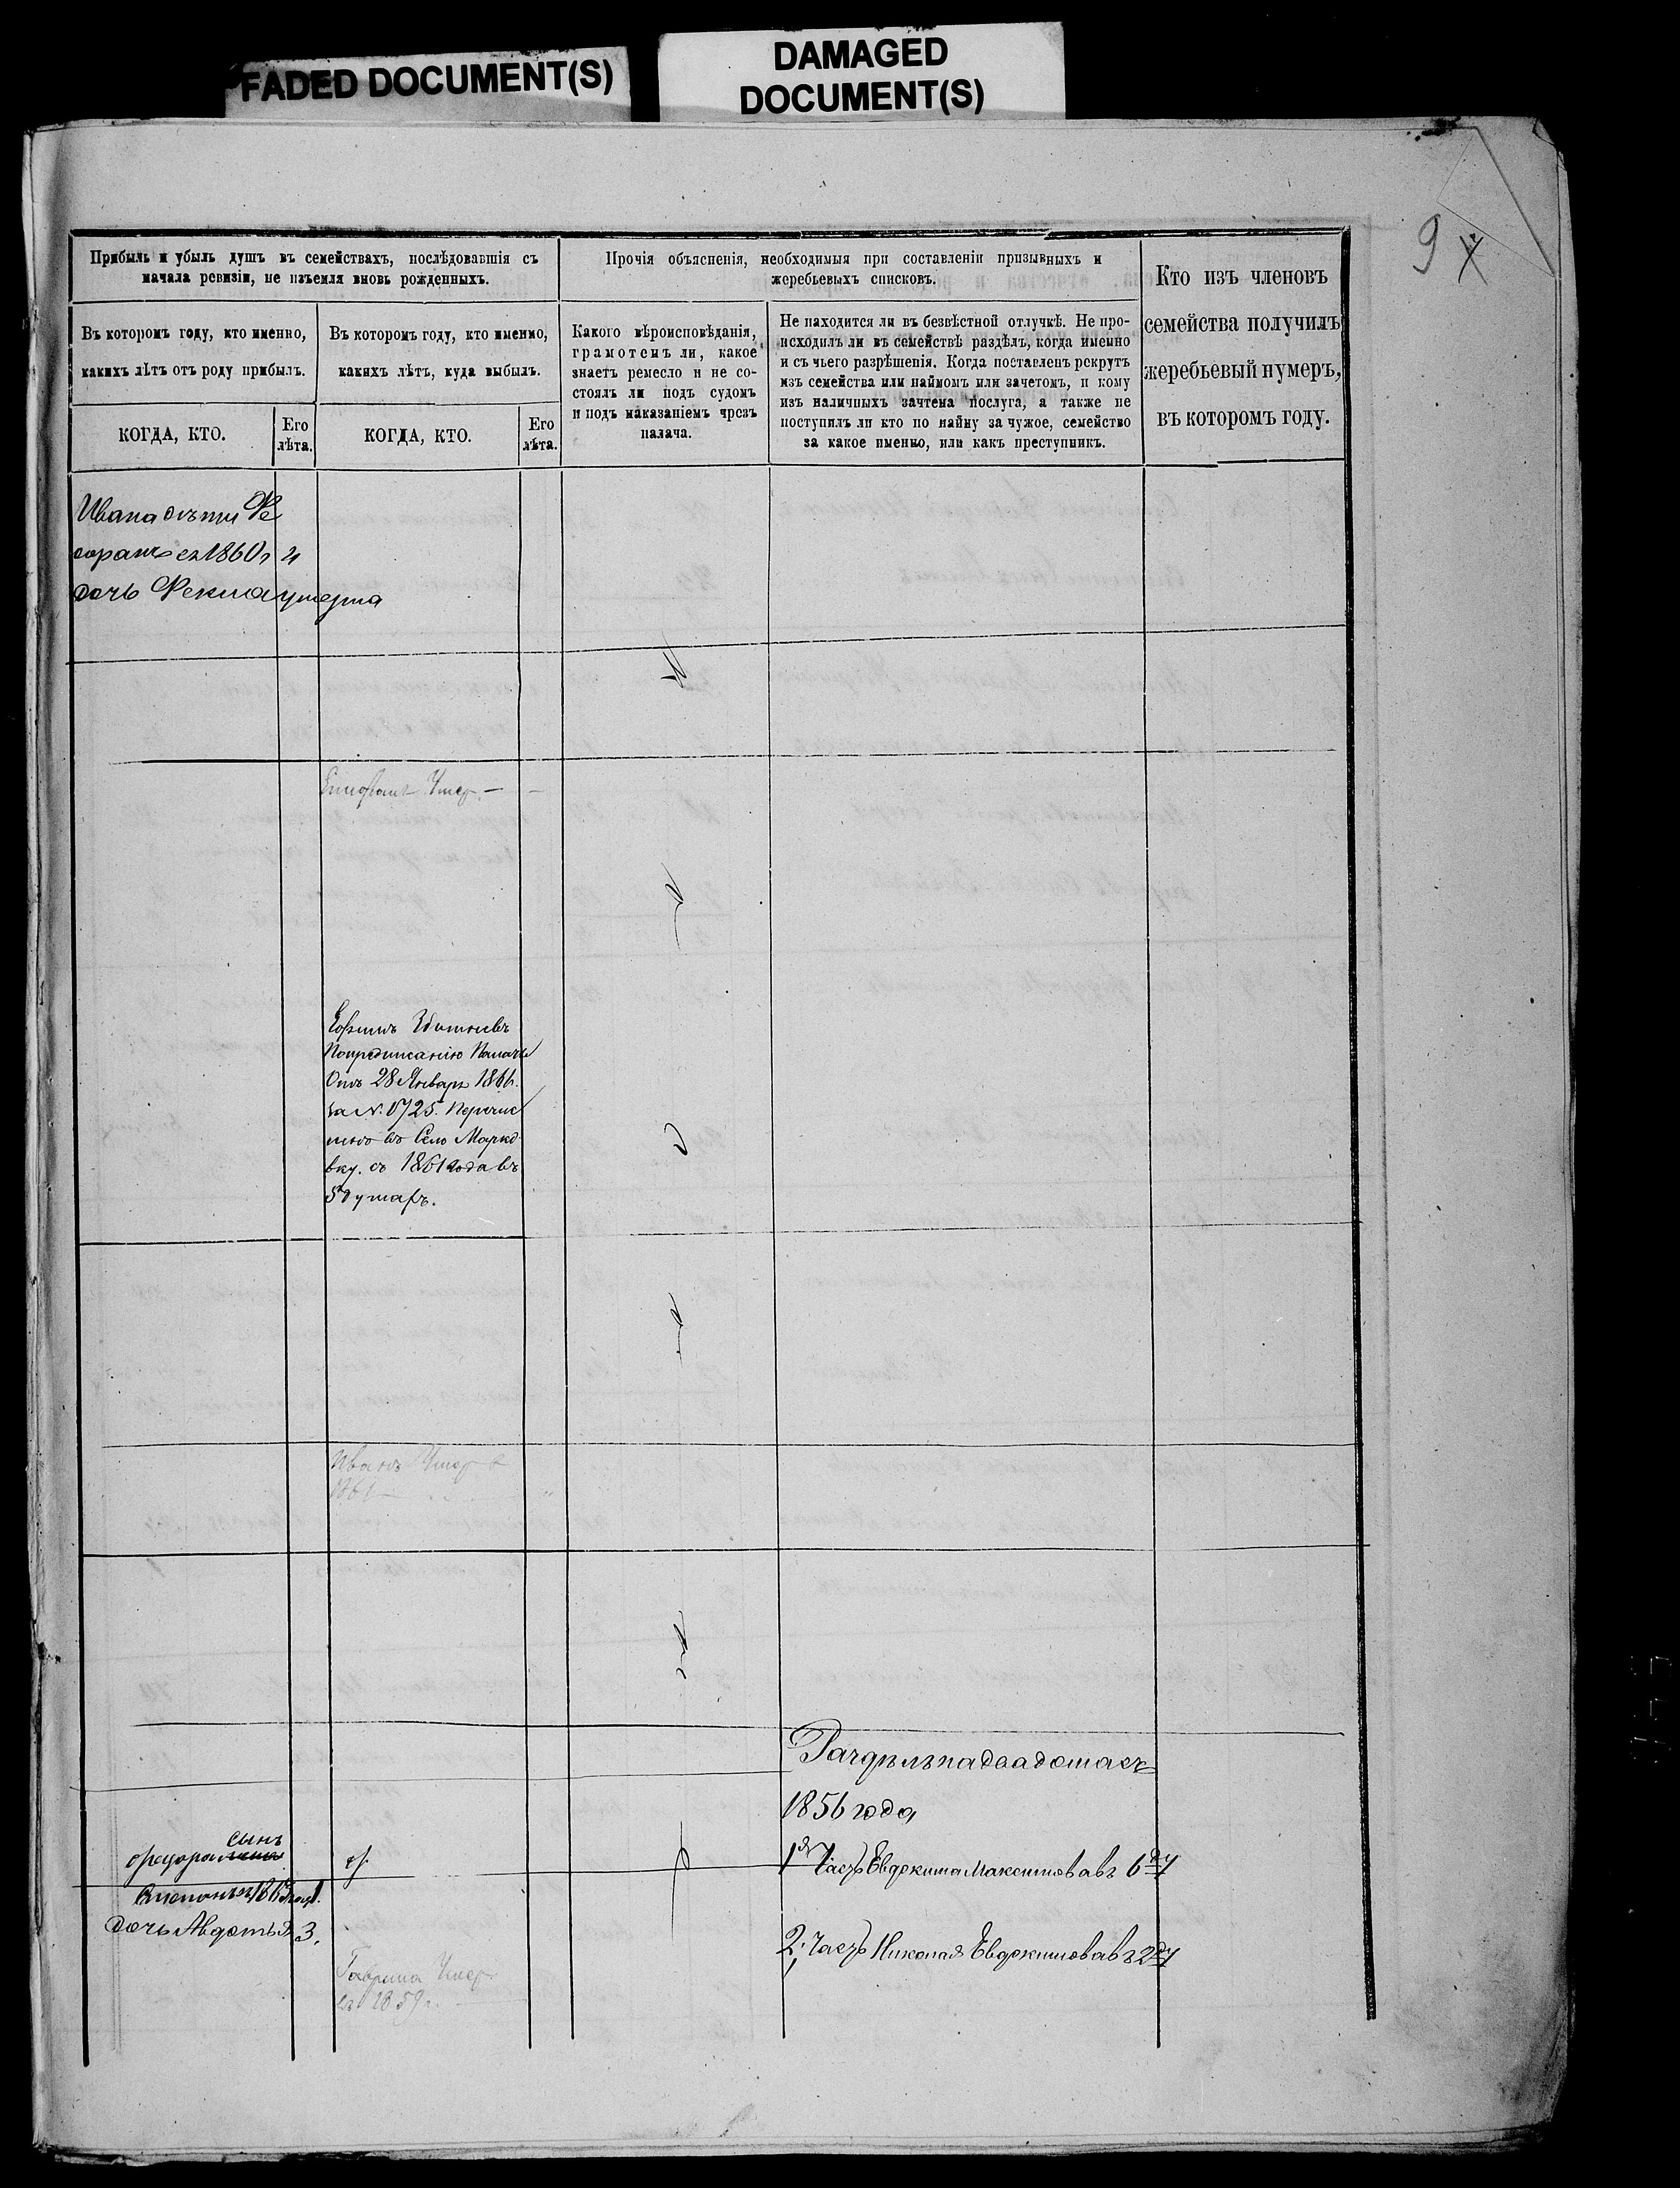 FADED DOCUMENT(S)
DAMAGED
DOCUMENT(S)
9
Прибыль и убыль душъ въ семействахъ, послѣдовавшія съ
начала ревизіи, не изъемля вновь рожденныхъ.
Прочія объясненія, необходимыя при составленіи призывныхъ и
жеребьевыхъ списковъ.
Кто изъ членовъ
семейства получилъ
жеребьевый нумеръ,
въ которомъ году.
Въ которомъ году, кто именно,
какихъ лѣтъ отъ роду прибылъ.
Въ которомъ году, кто именно,
какихъ лѣтъ, куда выбылъ.
Какого вѣроисповѣданія,
грамотенъ ли, какое
знаетъ ремесло и не со-
стоялъ ли подъ судомъ
и подъ наказаніемъ чрезъ
палача.
Не находится ли въ безвѣстной отлучкѣ. Не про-
исходилъ ли въ семействѣ раздѣлъ, когда именно
и съ чьего разрѣшенія. Когда поставленъ рекрутъ
изъ семейства или наймомъ или зачетомъ, и кому
изъ наличныхъ зачтена послуга, а также не
поступилъ ли кто по найму за чужое, семейство
за какое именно, или какъ преступникъ.
КОГДА, КТО.
Его
лѣта.
КОГДА, КТО.
Его
лѣта.
Ивана
1860
дочь Фекла умерла
Умер
Ефимъ
Попредписанію Палаты
Отъ 28 Января 1866.
за №. 6725. Перечис
ленъ въ Село Марко
вку. съ 1861 года въ
5 душахъ.
Иванъ Умер в
1861
Раздѣлъ на два дома съ
1856 года
1я Часть Евдокима Максимова въ 6 ду
2. Часть Николая Евдокимова въ 2 ду
сынъ
дочь Авдотья 3.
Гаврила Умер
въ 1859 г.